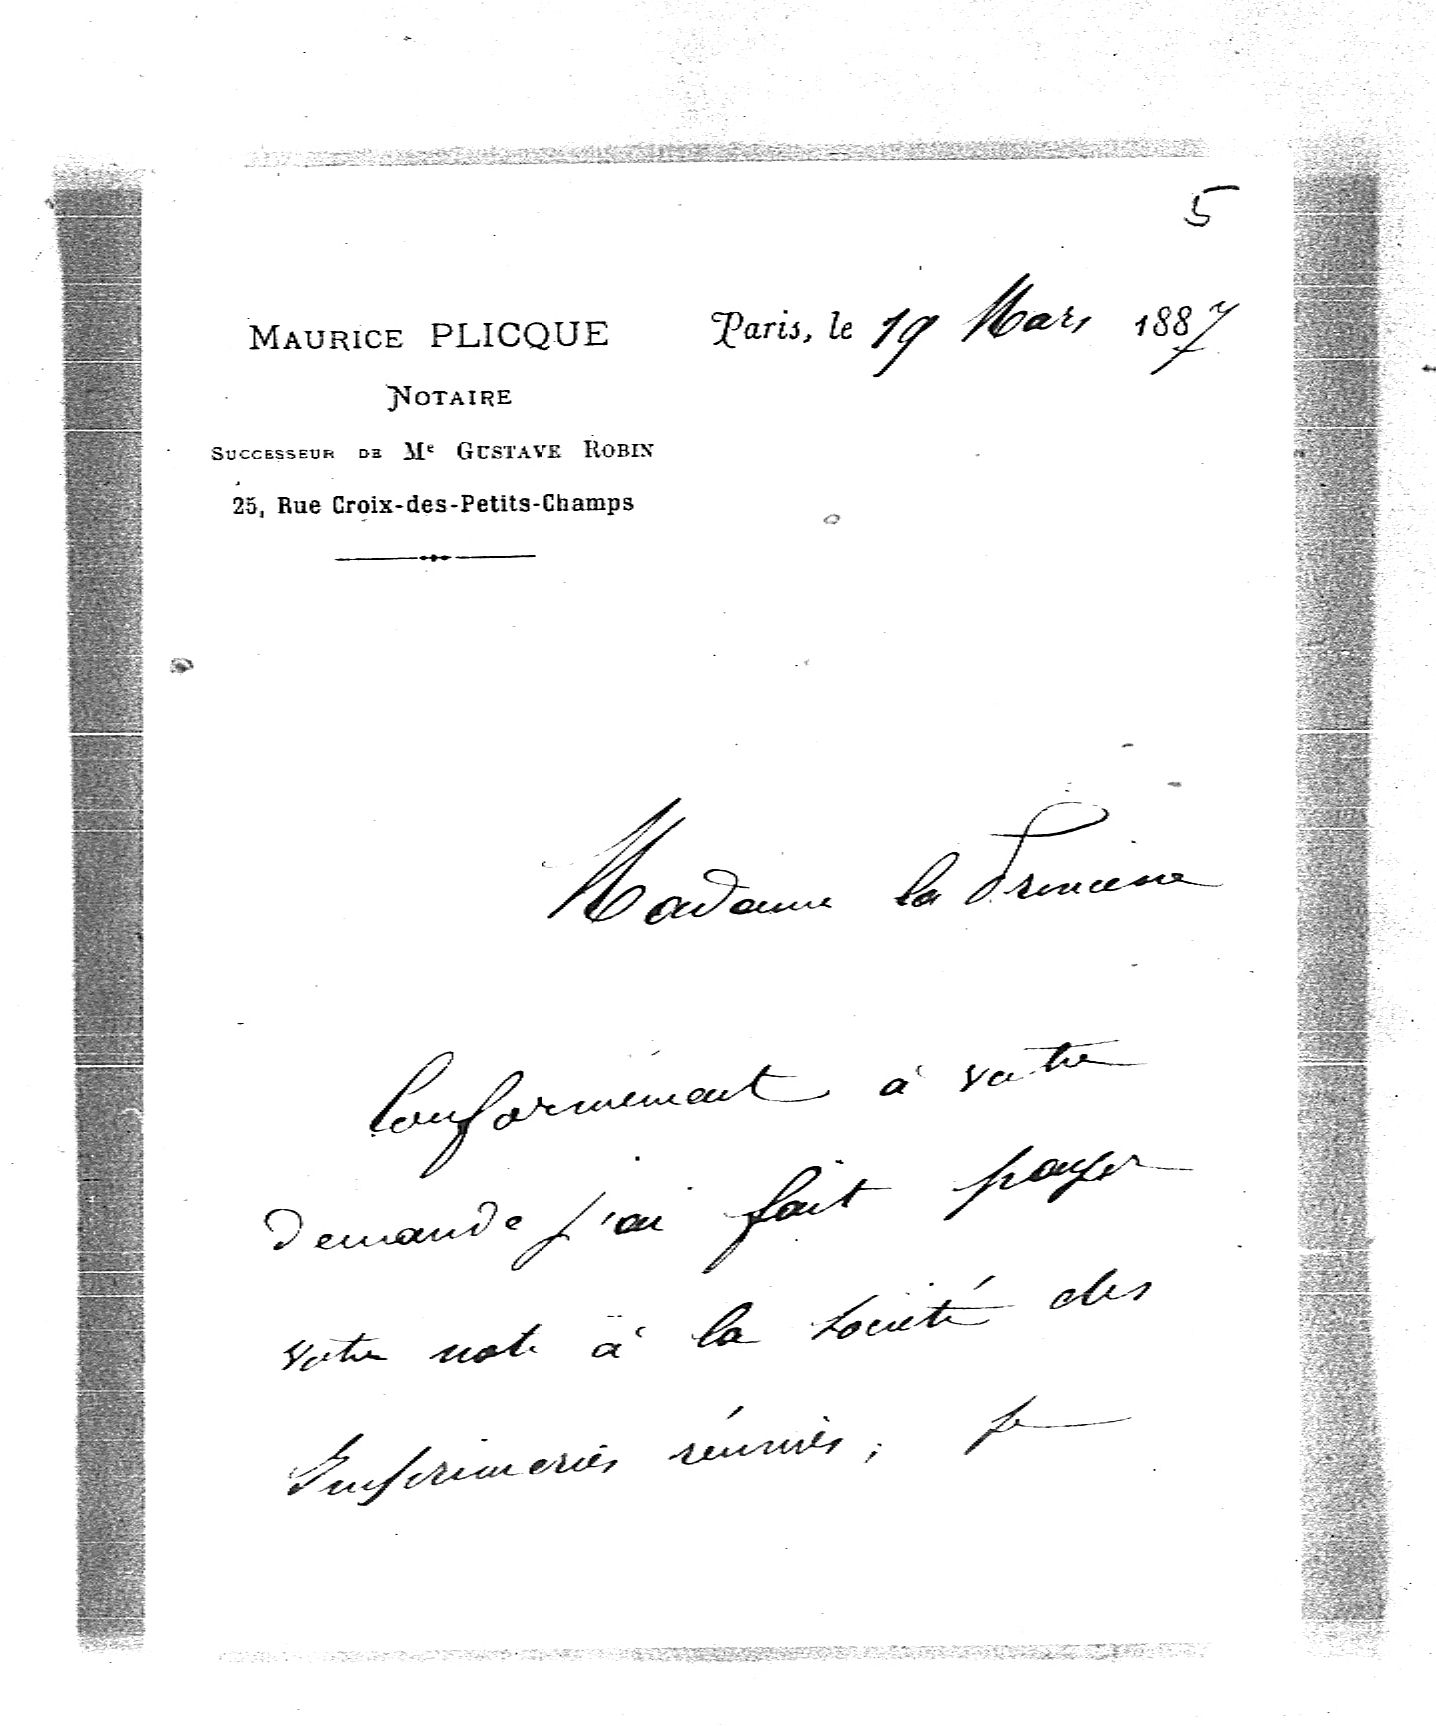 5
MAURICE PLICQUE
NOTAIRE
SUCCESSEUR DE Me GUSTAVE ROBIN
25, Rue Croix-des-Petits-Champs
Paris, le 19 Mars 1887
Madame la Princesse
Conformément à votre
demande j'ai fait payer
votre note à la Société des
Imprimeries réunies, je